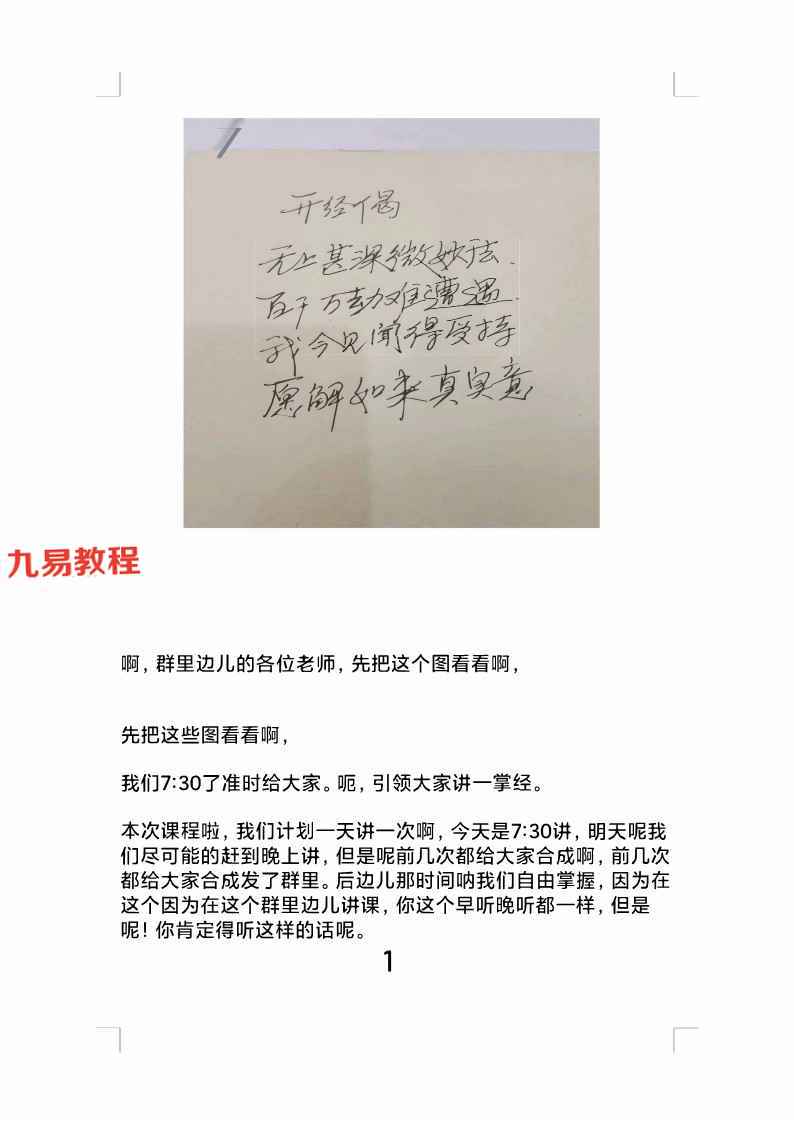 开经偈
无上甚深微妙法.
百千万劫难遭遇.
我今见闻得受持
愿解如来真实意
九易教程
啊,群里边儿的各位老师,先把这个图看看啊,
先把这些图看看啊,
我们7:30了准时给大家。呃,引领大家讲一掌经。
本次课程啦,我们计划一天讲一次啊,今天是7:30讲,明天呢我
们尽可能的赶到晚上讲,但是呢前几次都给大家合成啊,前几次
都给大家合成发了群里。后边儿那时间呐我们自由掌握,因为在
这个因为在这个群里边儿讲课,你这个早听晚听都一样,但是
呢!你肯定得听这样的话呢。
1